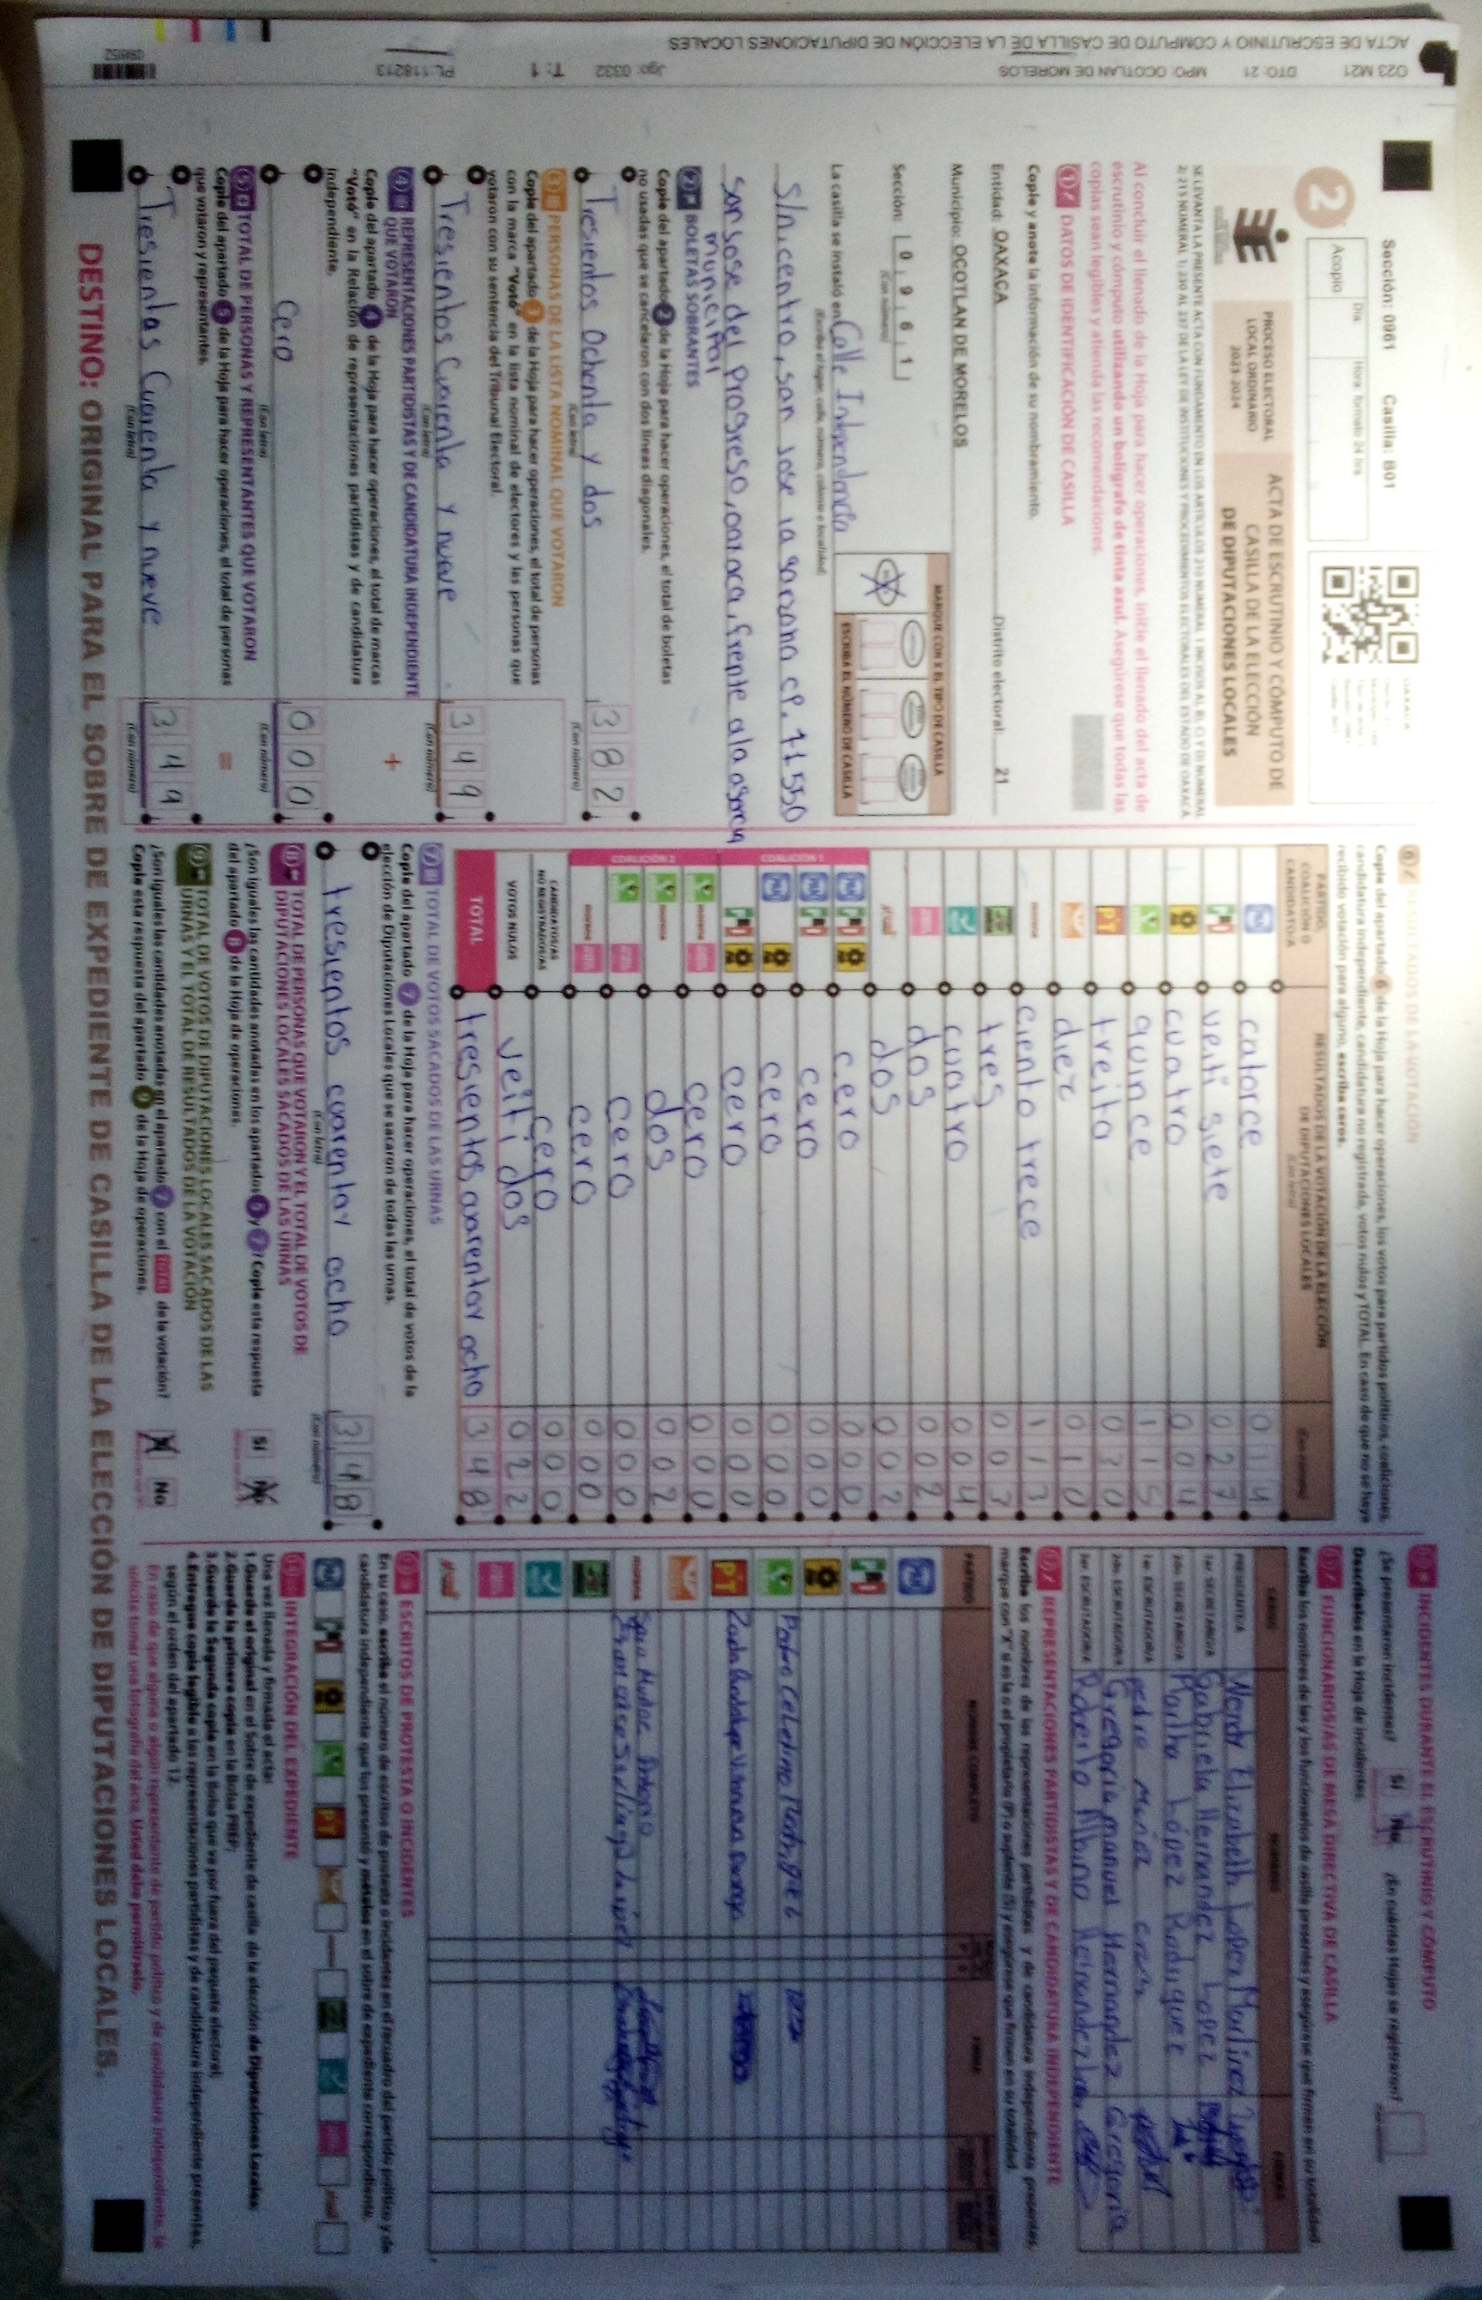 ACTA DE ESCRUTINIO Y CÓMPUTO DE CASILLA DE LA ELECCIÓN DE DIPUTACIONES LOCALES
O23 M21 DTO: 21 MPO: OCOTLAN DE MORELOS Jgo: 0332 T: 1 PL:118213
09652
Sección: 0961 Casilla: B01
2
Acopio
Día
Hora: formato 24 hrs.
PROCESO ELECTORAL
LOCAL ORDINARIO
2023-2024
ACTA DE ESCRUTINIO Y CÓMPUTO DE
CASILLA DE LA ELECCIÓN
DE DIPUTACIONES LOCALES
Al concluir el llenado de la Hoja para hacer operaciones, inicie el llenado del acta de
escrutinio y cómputo utilizando un bolígrafo de tinta azul. Asegúrese que todas las
copias sean legibles y atienda las recomendaciones.
1 DATOS DE IDENTIFICACIÓN DE CASILLA
Copie y anote la información de su nombramiento.
Entidad: OAXACA Distrito electoral: 21
Municipio: OCOTLAN DE MORELOS
Sección: 0 9 6 1
(Con número)
MARQUE CON X EL TIPO DE CASILLA
ESCRIBA EL NÚMERO DE CASILLA
La casilla se instaló en: Calle Independencia
(Escriba el lugar: calle, número, colonia o localidad)
S/n, centro, san Jose la garzona CP. 71550
San Jose del Progreso, oaxaca, frente a la agencia
municipal
2 BOLETAS SOBRANTES
Copie del apartado 2 de la Hoja para hacer operaciones, el total de boletas
no usadas que se cancelaron con dos líneas diagonales.
Tresientos Ochenta y dos 382
(Con letra) (Con número)
3 PERSONAS DE LA LISTA NOMINAL QUE VOTARON
Copie del apartado 3 de la Hoja para hacer operaciones, el total de personas
con la marca "Votó" en la lista nominal de electores y las personas que
votaron con su sentencia del Tribunal Electoral.
Tresientos Cuarenta y nueve 349
(Con letra) (Con número)
4 REPRESENTACIONES PARTIDISTAS Y DE CANDIDATURA INDEPENDIENTE
QUE VOTARON
Copie del apartado 4 de la Hoja para hacer operaciones, el total de marcas
"Votó" en la Relación de representaciones partidistas y de candidatura
independiente.
+
Cero 000
(Con letra) (Con número)
5 TOTAL DE PERSONAS Y REPRESENTANTES QUE VOTARON
Copie del apartado 5 de la Hoja para hacer operaciones, el total de personas
que votaron y representantes.
=
Tresientas Cuarenta y nueve 349
(Con letra) (Con número)
6 RESULTADOS DE LA VOTACIÓN
Copie del apartado 6 de la Hoja para hacer operaciones, los votos para partidos políticos, coaliciones,
candidatura independiente, candidatura no registrada, votos nulos y TOTAL. En caso de que no se haya
recibido votación para alguno, escriba ceros.
PARTIDO,
COALICIÓN O
CANDIDATO/A
RESULTADOS DE LA VOTACIÓN DE LA ELECCIÓN
DE DIPUTACIONES LOCALES
(Con letra)
(Con número)
PAN catorce 014
PRI veiti siete 027
PRD cuatro 004
VERDE quince 115
PT treita 030
diez 010
morena ciento trece 113
tres 003
cuatro 004
dos 002
dos 002
COALICIÓN 1
PAN PRI PRD cero 000
PAN PRI cero 000
PAN PRD cero 000
PRI PRD cero 000
COALICIÓN 2
VERDE morena cero 000
VERDE morena dos 002
VERDE cero 000
morena cero 000
CANDIDATOS/AS
NO REGISTRADOS/AS cero 000
VOTOS NULOS veiti dos 022
TOTAL tresientos cuarentay ocho 348
7 TOTAL DE VOTOS SACADOS DE LAS URNAS
Copie del apartado 7 de la Hoja para hacer operaciones, el total de votos de la
elección de Diputaciones Locales que se sacaron de todas las urnas.
tresientos cuarentay ocho 348
(Con letra) (Con número)
8 TOTAL DE PERSONAS QUE VOTARON Y EL TOTAL DE VOTOS DE
DIPUTACIONES LOCALES SACADOS DE LAS URNAS
¿Son iguales las cantidades anotadas en los apartados 5 y 7? Copie esta respuesta
del apartado 8 de la Hoja de operaciones.
Sí No
9 TOTAL DE VOTOS DE DIPUTACIONES LOCALES SACADOS DE LAS
URNAS Y EL TOTAL DE RESULTADOS DE LA VOTACIÓN
¿Son iguales las cantidades anotadas en el apartado 7 con el TOTAL de la votación?
Copie esta respuesta del apartado 9 de la Hoja de operaciones.
Sí No
INCIDENTES DURANTE EL ESCRUTINIO Y CÓMPUTO
¿Se presentaron incidentes? Sí No ¿En cuántas Hojas se registraron?
Descríbalos en la Hoja de incidentes.
FUNCIONARIOS/AS DE MESA DIRECTIVA DE CASILLA
Escriba los nombres de las y los funcionarios de casilla presentes y asegúrese que firmen en su totalidad.
CARGO NOMBRES FIRMAS
PRESIDENTE/A Wendy Elizabeth Lopez Martinez
1er. SECRETARIO/A Gabriela Hernandez Lopez
2do. SECRETARIO/A Martha López Rodriguez
1er. ESCRUTADOR/A pedro Muñoz
2do. ESCRUTADOR/A Gregoria manuel Hernandez Gregoria
3er. ESCRUTADOR/A Roberto Albino Hernandez
REPRESENTACIONES PARTIDISTAS Y DE CANDIDATURA INDEPENDIENTE
Escriba los nombres de las representaciones partidistas y de candidatura independiente presentes,
marque con "X" si es la o el propietario (P) o suplente (S) y asegúrese que firmen en su totalidad.
PARTIDO NOMBRE COMPLETO FIRMA
PAN
PRI
PRD
VERDE Pedro Celestino
PT
morena
ESCRITOS DE PROTESTA O INCIDENTES
En su caso, escriba el número de escritos de protesta o incidentes en el recuadro del partido político y de
candidatura independiente que los presentó y métalos en el sobre de expediente correspondiente.
INTEGRACIÓN DEL EXPEDIENTE
Una vez llenada y firmada el acta:
1.Guarde el original en el Sobre de expediente de casilla de la elección de Diputaciones Locales.
2.Guarde la primera copia en la Bolsa PREP.
3.Guarde la Segunda copia en la Bolsa que va por fuera del paquete electoral.
4.Entregue copia legible a las representaciones partidistas y de candidatura independiente presentes,
según el orden del apartado 12.
En caso de que alguna o algún representante de partido político y de candidatura independiente, le
solicite tomar una fotografía del acta, Usted debe permitírselo.
DESTINO: ORIGINAL PARA EL SOBRE DE EXPEDIENTE DE CASILLA DE LA ELECCIÓN DE DIPUTACIONES LOCALES.